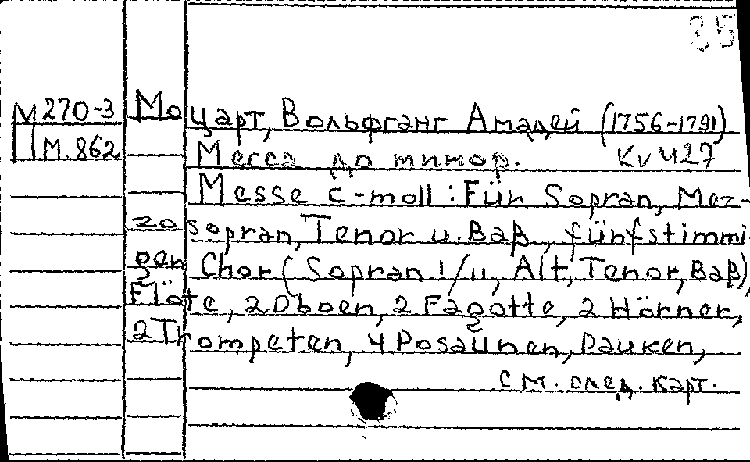 35
М 270-3 Моцарт, Вольфганг Амадей (1756-1791)
М. 862 Месса до минор. KV 427
Messe c-moll: Für Sopran, Mez-
zosopran, Tenor u. Baß, fünfstimmi
gen Chor (Sopran I/II, Alt, Tenor, Baß),
Flöte, 2 Oboen, 2 Fagotte, 2 Hörner,
2 Trompeten, 4 Posaunen, Pauken,
см. след. карт.